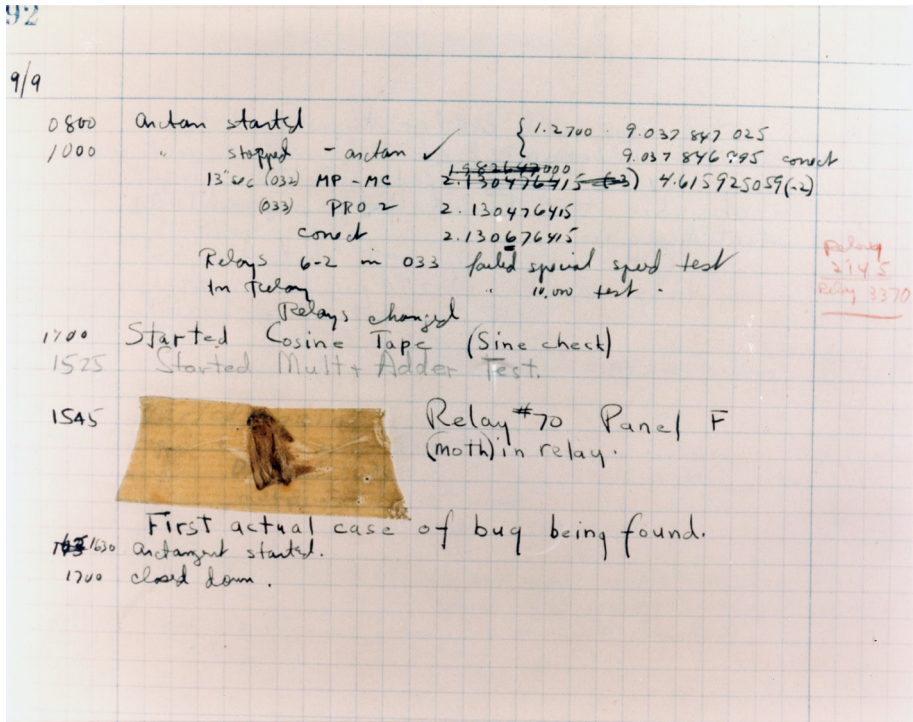 92
9/9
0800 arctan started { 1.2700 9.037 847 025
1000 " stopped - arctan ✓ 9.037 846 995 correct
13"uc (032) MP - MC 2.130476415 (-3) 4.615925059(-2)
(033) PRO 2 2.130476415
correct 2.130676415
Relays 6-2 in 033 failed special speed test
In relay " 10.000 test .
Relay
2145
Relay 3370
Relays changed
1700 Started Cosine Tape (Sine check)
1525 Started Mult + Adder Test.
1545 Relay #70 Panel F
(moth) in relay.
First actual case of bug being found.
1630 arctangent started.
1700 closed down.